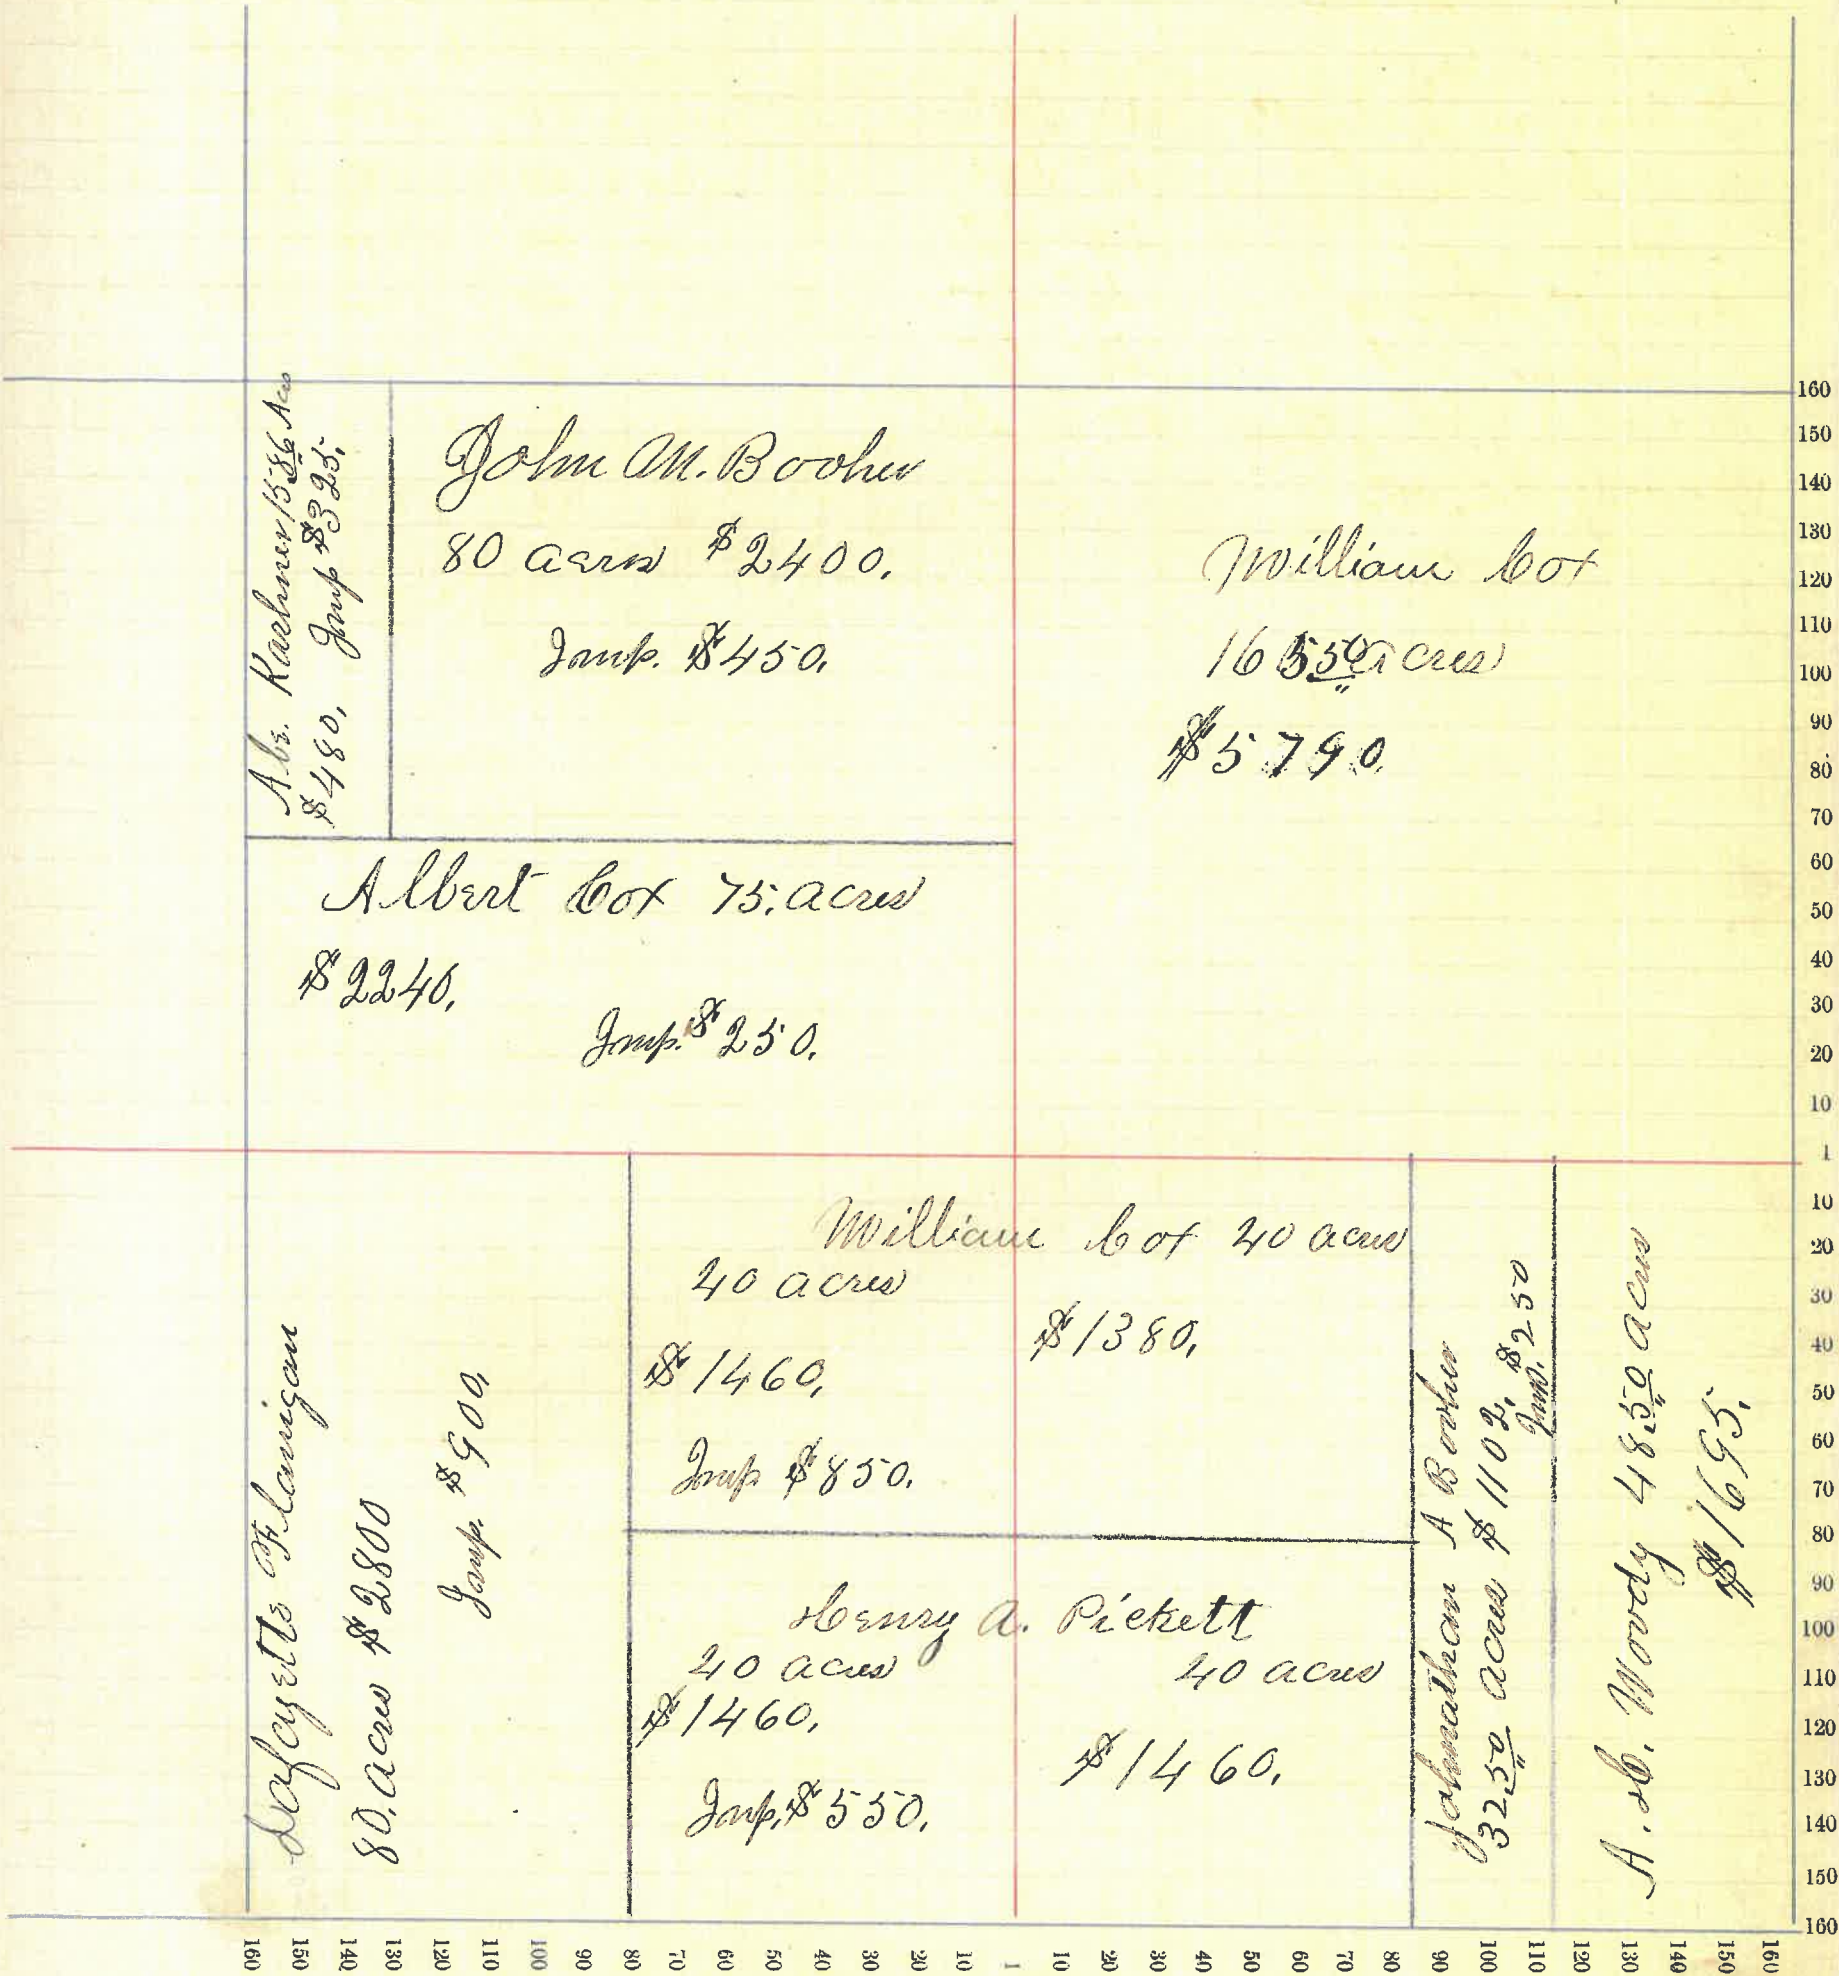 Abe. Karhner 15 86 Acres
$480, Imp $325,
John M. Booher
80 acres $2400,
Imp. $450,
William Cox
165 50 acres
$5790.
Albert Cox 75, acres
$2240,
Imp. $250,
Lafayette Flanigan
80, acres $2800
Imp. $900,
William Cox 40 acres
40 acres
$1380,
$1460,
Imp $850,
Henry A. Pickett
40 acres
40 acres
$1460,
$1460,
Imp, $550,
Johnathan A Booher
32 50 acres $1102,
Imp. $250
A. H. Woody 48 50 acres
$1695,
160
150
140
130
120
110
100
90
80
70
60
50
40
30
20
10
1
10
20
30
40
50
60
70
80
90
100
110
120
130
140
150
160
160 150 140 130 120 110 100 90 80 70 60 50 40 30 20 10 1 10 20 30 40 50 60 70 80 90 100 110 120 130 140 150 160